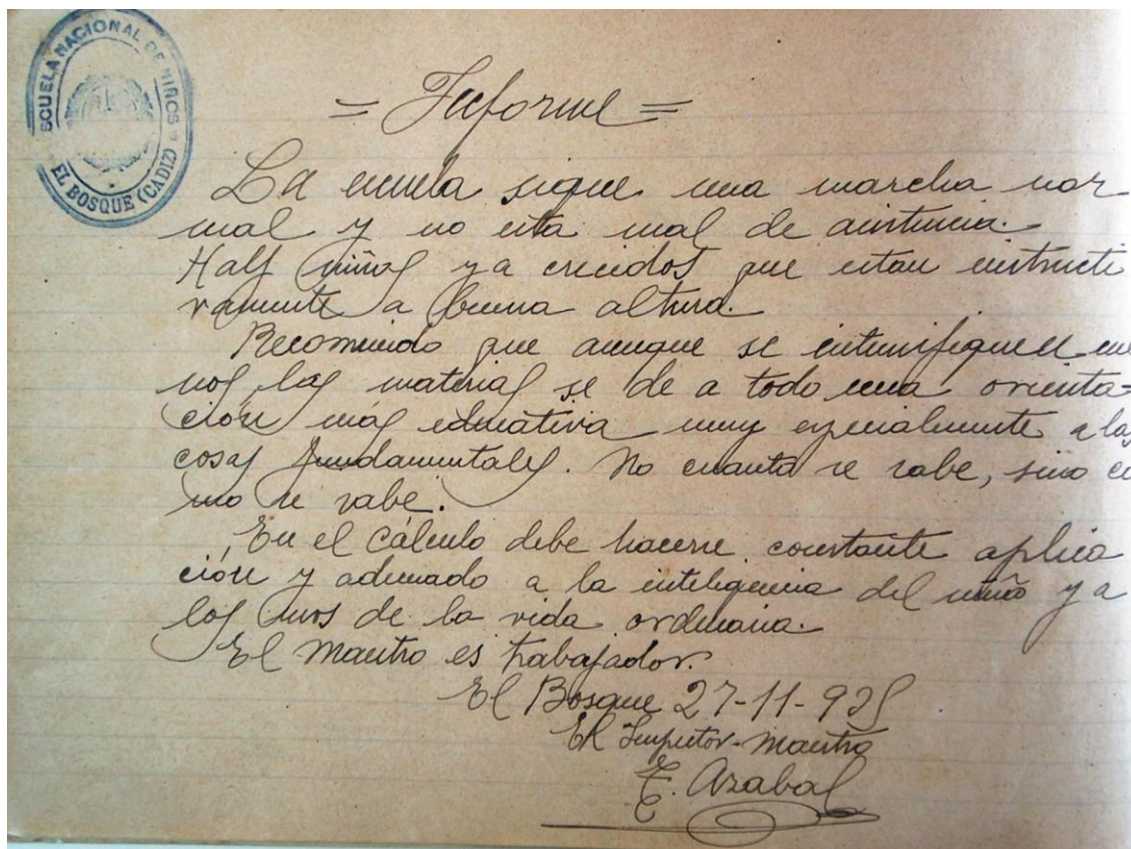 ESCUELA NACIONAL DE NIÑOS
EL BOSQUE (CADIZ)
= Informe =
La escuela sigue una marcha nor
mal y no esta mal de asistencia.
Hall niños ya crecidos que estan instructi
vamente a buena altura.
Recomiendo que aunque se intensifiquen me
nos las materias se de a todo una orienta-
ción más educativa muy especialmente a las
cosas fundamentales. No cuanto se sabe, sino co
mo se sabe.
En el cálculo debe hacerse constante aplica
ción y adecuado a la inteligencia del niño y a
los usos de la vida ordinaria.
El Maestro es trabajador.
El Bosque 27-11-925
El Inspector-Maestro
T. Arabal